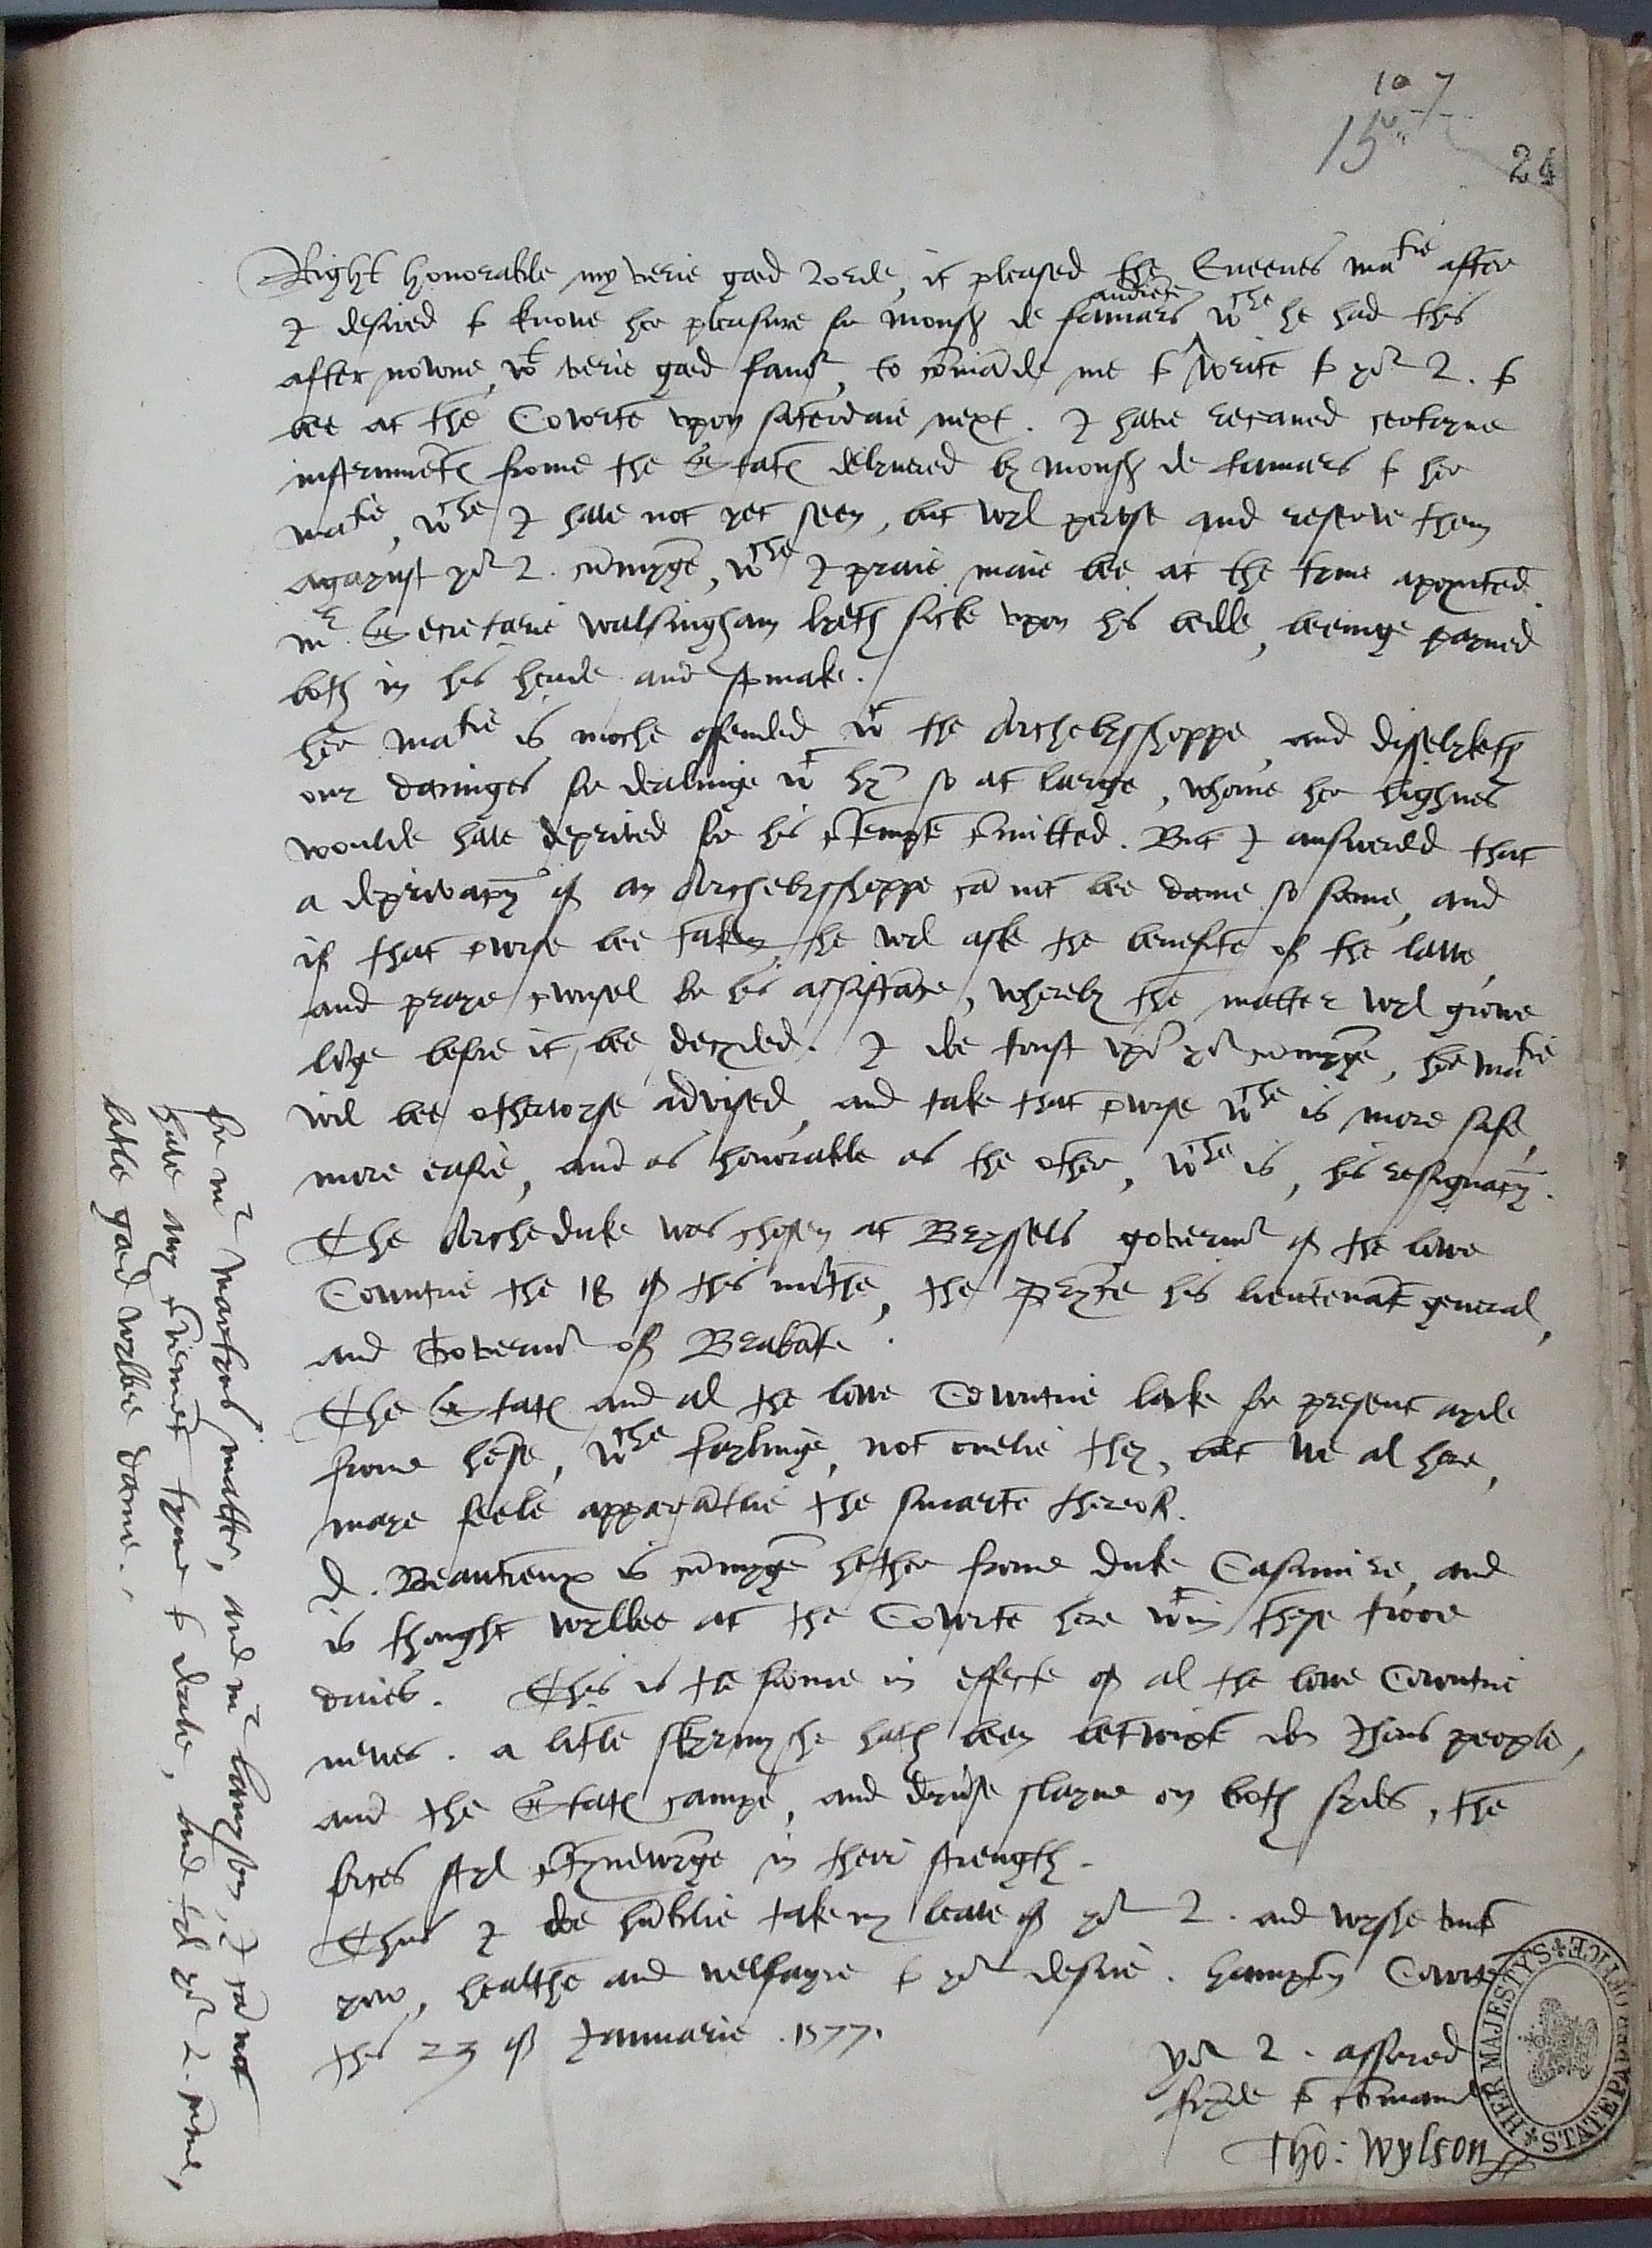 107
15
24
Right honorable my verie good Lorde, it pleased the Queenes matie after
I desired to knowe her pleasure for monsr de famars audience wche he had this
after nowne, wt verie good favor, to comande me to write to yor L. to
bee at the Cowrte upon saterdaie next. I have receaved certayne
instrumētes frome the States delyvered by monsr de famars to her
matie, wche I have not yet seen, but wyl peruse and reserve them
agaynst yor L. cōmyge, wche I praie maie bee at the tyme apoynted.
mr Secretarie walsingham lyeth sicke upon his bedde, beeinge payned
both in his heade and stomake.
her matie is moche offended wt the Archebysshoppe, and disselyketh
our doeinges for dealinge wt hȳ so at large, whome her highnes
woulde have deprived for his cōtempte cōmitted. But I answered that
a deprivacyō of an Archebysshoppe cā not bee doone so soone, and
if that cowrse bee taken, he wyl aske the benefite of the lawe,
and praye cownsel for his assistāce, whereby the matter wyl growe
lōge before it bee decyded. I doe trust upō yor cōmyge, her matie
wil bee otherwyse advised, and take that cowrse wche is more safe,
more easie, and as honorable as the other, wche is, his resignacyō.
The Archeduke was chosen at Bryssels governor of the lowe
Cowntrie the 18 of this mōthe, the prȳce his lieutenāt general,
and Governor of Brabāte.
The States and al the lowe Cowntrie looke for present ayde
frome hēse, wche faylinge, not onelie they, but we al here,
maye feele apparātlie the smarte thereof.
D. Beautrieux is cōmyge hether frome Duke Casimire, and
is thought wylbee at the Cowrte here wtin these twoe
daies. This is the somme in effecte of al the lowe Cowntrie
newes. a litle skyrmyshe hath been betwixt don Jhons people,
and the States campe, and dyverse slayne on both sydes, the
forces styl cōtynewyge in their strength.
Thus I doe hūblie take my leave of yor L. and wyshe unto
yow, healthe and welfayre to yor desire. hampton Cowrte
this 23 of Januarie. 1577.
yor L. assured
frȳde to cōmaund
Tho: Wylson
for mr martyns matter, and mr langston, I cā not
have any cōvenient tyme to deale, and tel yor L. come,
litle good wylbee doone.
HER MAJESTYS STATE PAPER OFFICE